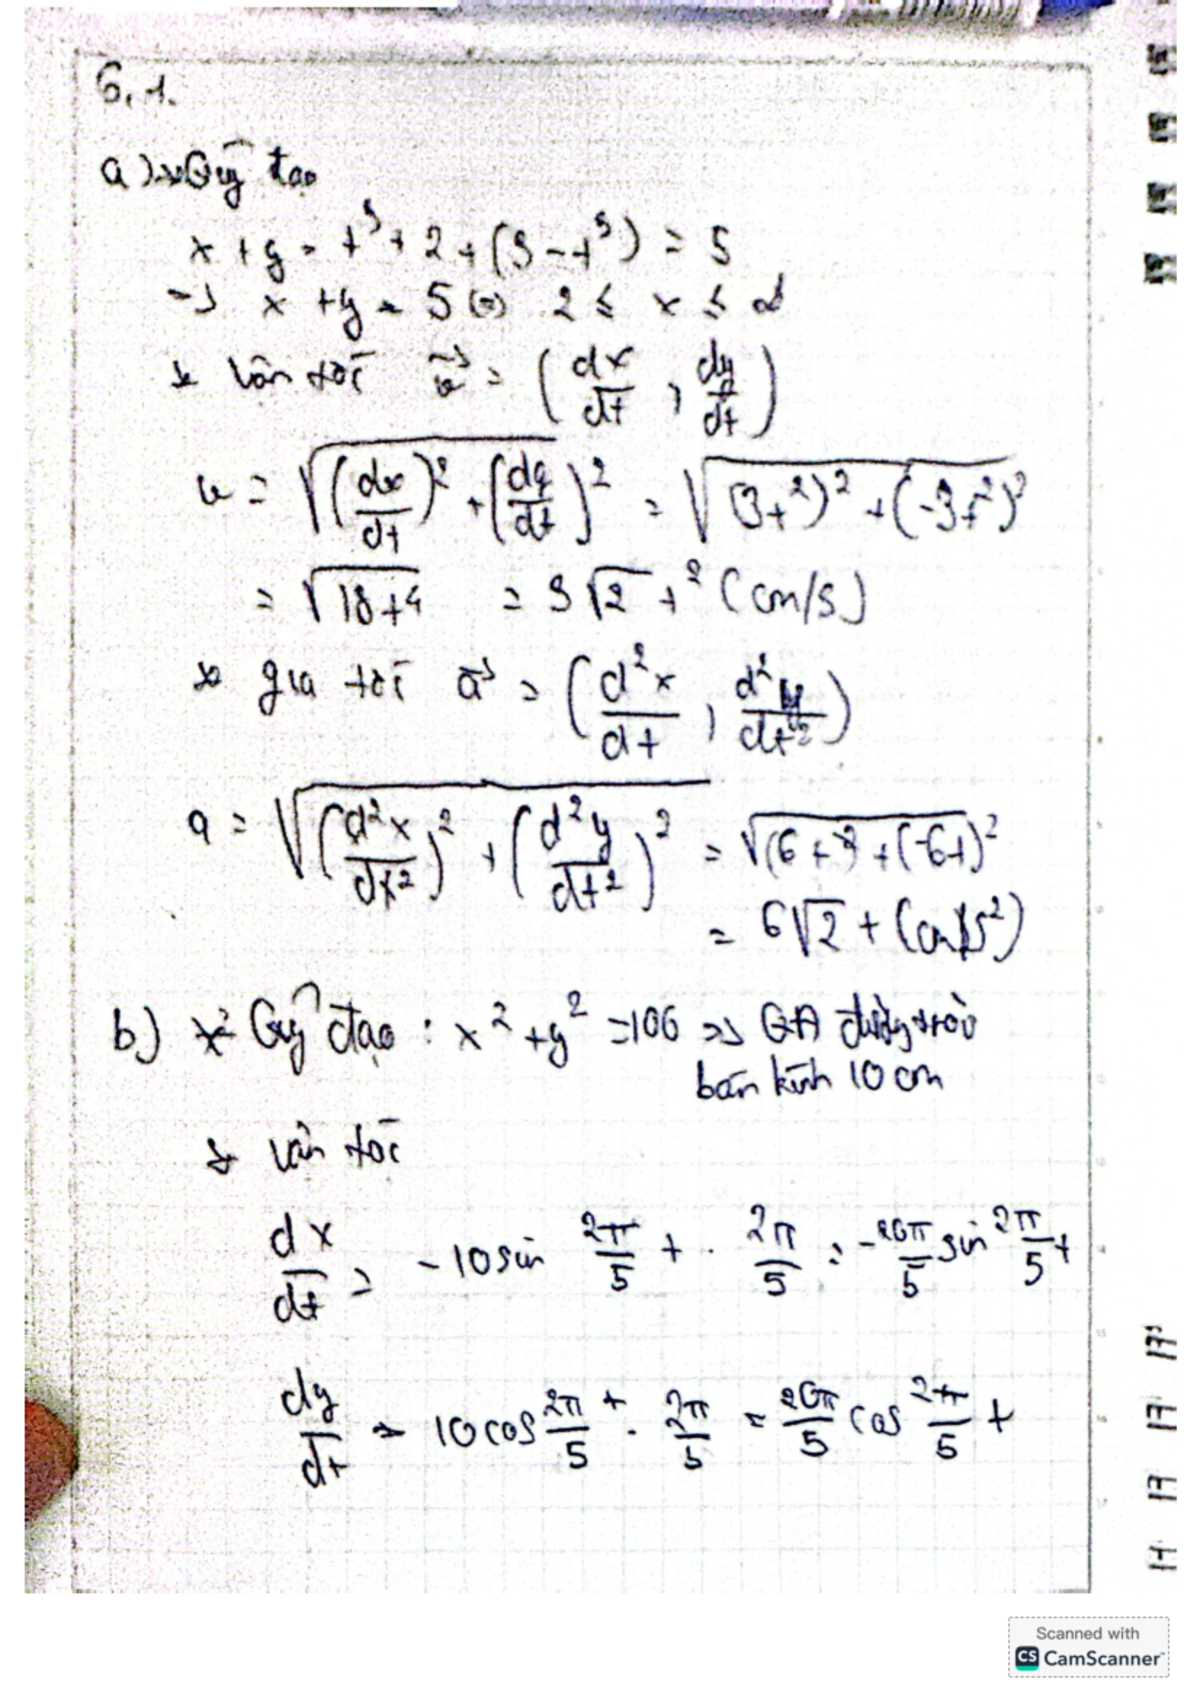 6.1.
a) * Quỹ đạo
x + y = t³ + 2 + (3 - t³) = 5
→ x + y = 5 2 ≤ x ≤ α
* Vận tốc v⃗ = (dx/dt, dy/dt)
v = √((dx/dt)² + (dy/dt)²) = √((3t²)² + (-3t²)²)
= √(18t⁴) = 3√2 t² (cm/s)
* gia tốc a⃗ = (d²x/dt, d²y/dt²)
a = √((d²x/dx²)² + (d²y/dt²)²) = √((6t)² + (-6t)²)
= 6√2 t (cm/s²)
b) * Quỹ đạo : x² + y² = 100 => QĐ đường tròn
bán kính 10 cm
* Vận tốc
dx/dt = -10 sin 2π/5 t . 2π/5 = -20π/5 sin 2π/5 t
dy/dt = 10 cos 2π/5 t . 2π/5 = 20π/5 cos 2π/5 t
17
17
17
17
Scanned with
CS CamScanner